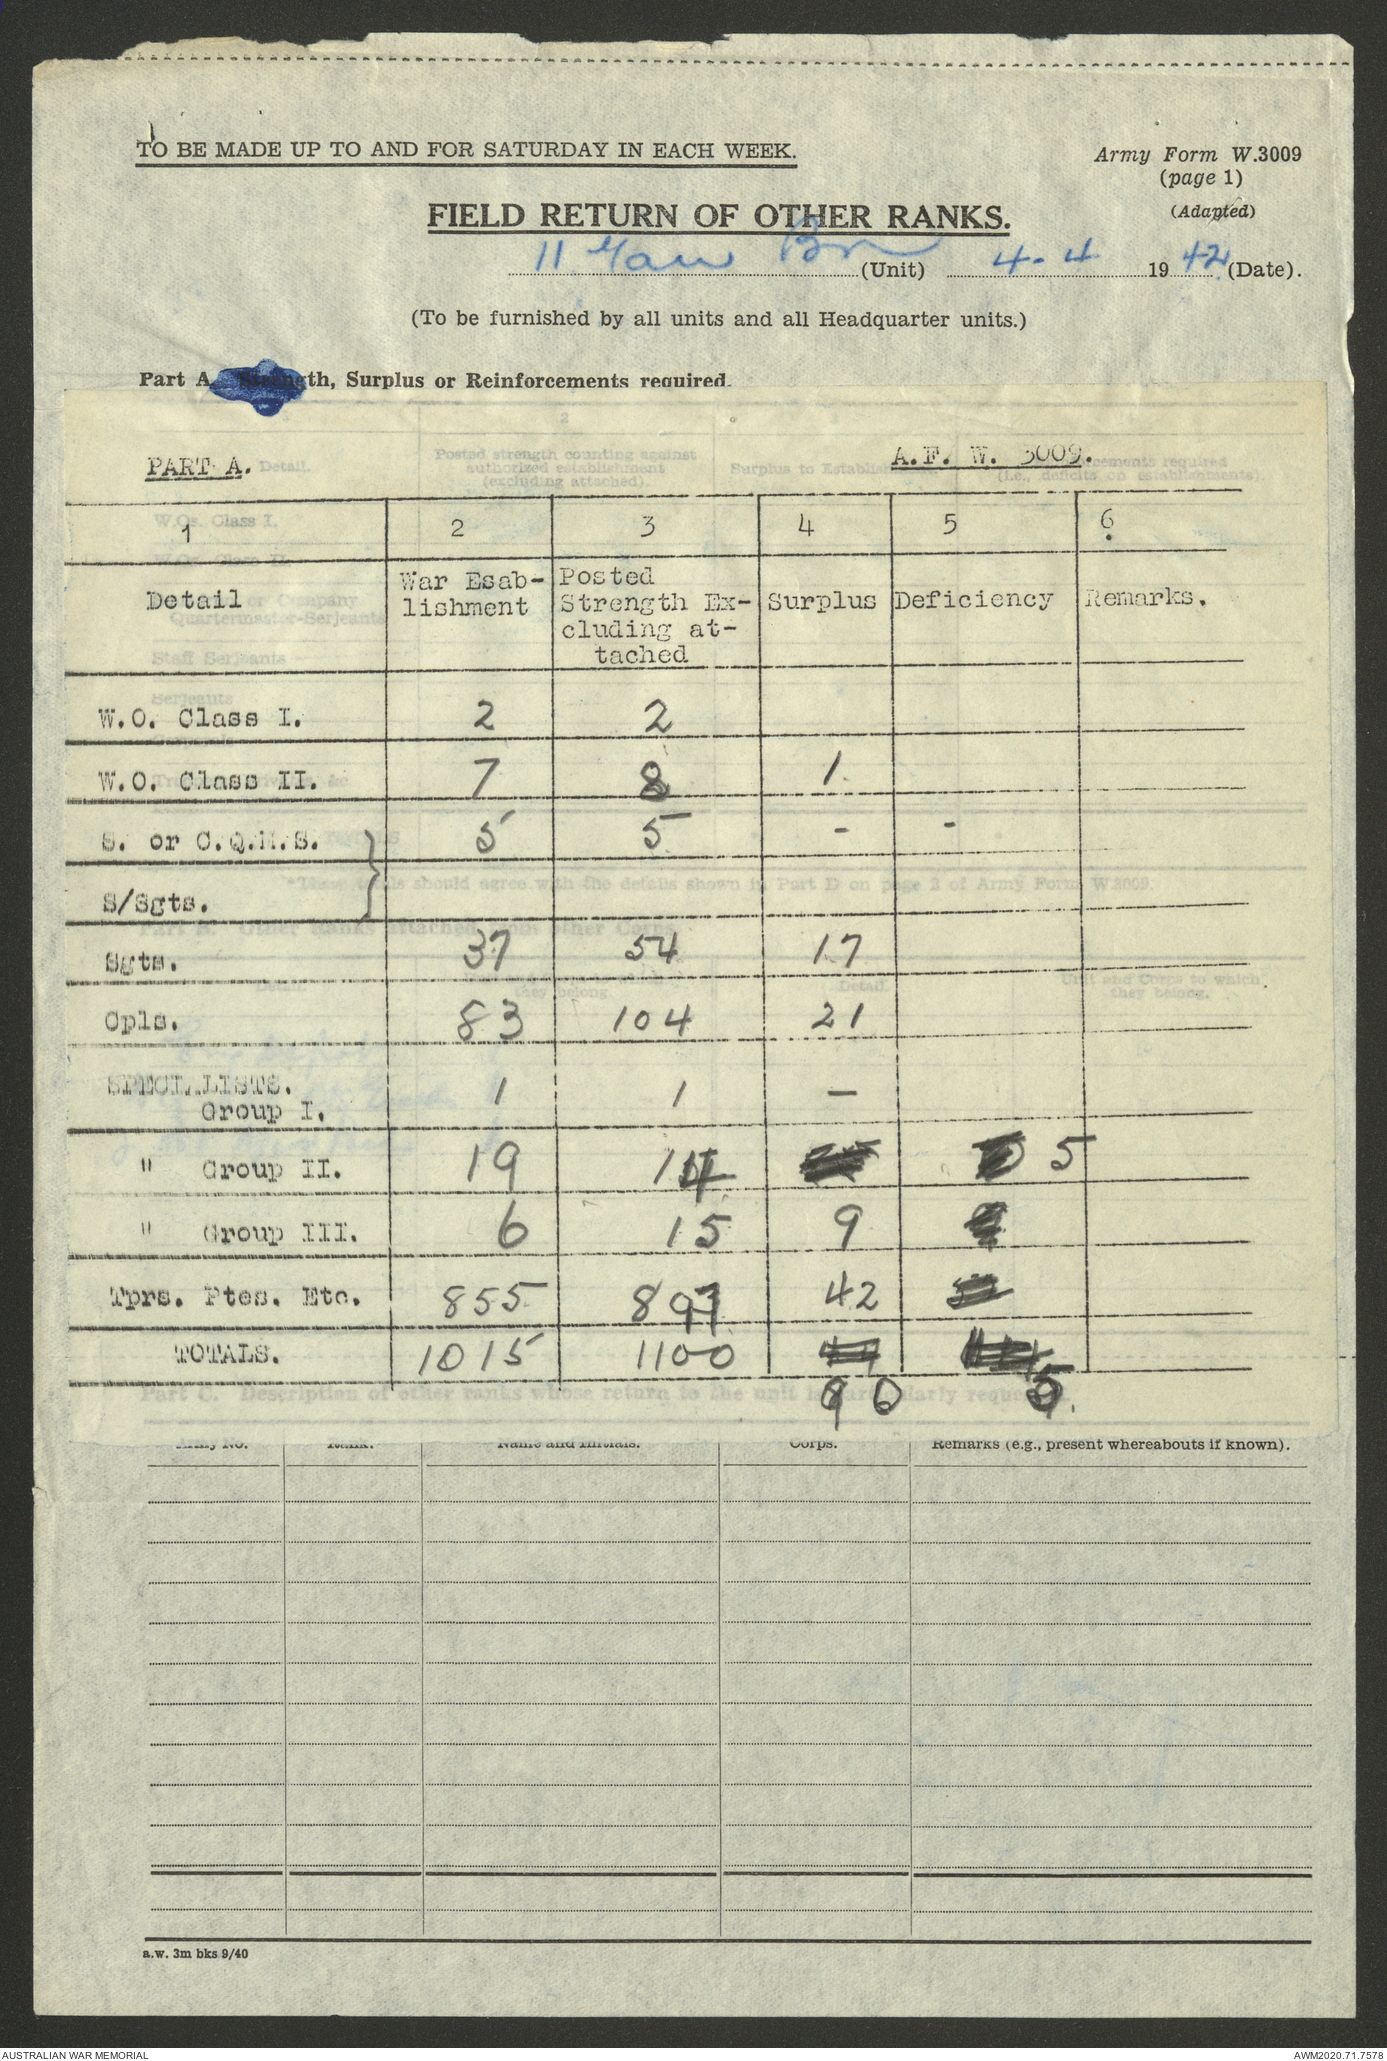 TO BE MADE UP TO AND FOR SATURDAY IN EACH WEEK.
Army Form W.3009
(page 1)
(Adapted)
FIELD RETURN OF OTHER RANKS.
11 Garr Bn (Unit) 4-4 1942 (Date).
(To be furnished by all units and all Headquarter units.)
Part A. Strength, Surplus or Reinforcements required.
PART A. A.F. W. 3009.
1 2 3 4 5 6
Detail War Esab-lishment Posted Strength Ex-cluding at-tached Surplus Deficiency Remarks.
W.O. Class I. 2 2
W.O. Class II. 7 8 1
S. or C.Q.M.S. 5 5 - -
S/Sgts.
Sgts. 37 54 17
Cpls. 83 104 21
SPECIALISTS.
Group I. 1 1 -
" Group II. 19 14 5
" Group III. 6 15 9
Tprs. Ptes. Etc. 855 897 42
TOTALS. 1015 1100
90 5.
Army No. Rank. Name and Initials. Corps. Remarks (e.g., present whereabouts if known).
a.w. 3m bks 9/40
AUSTRALIAN WAR MEMORIAL
AWM2020.71.7578